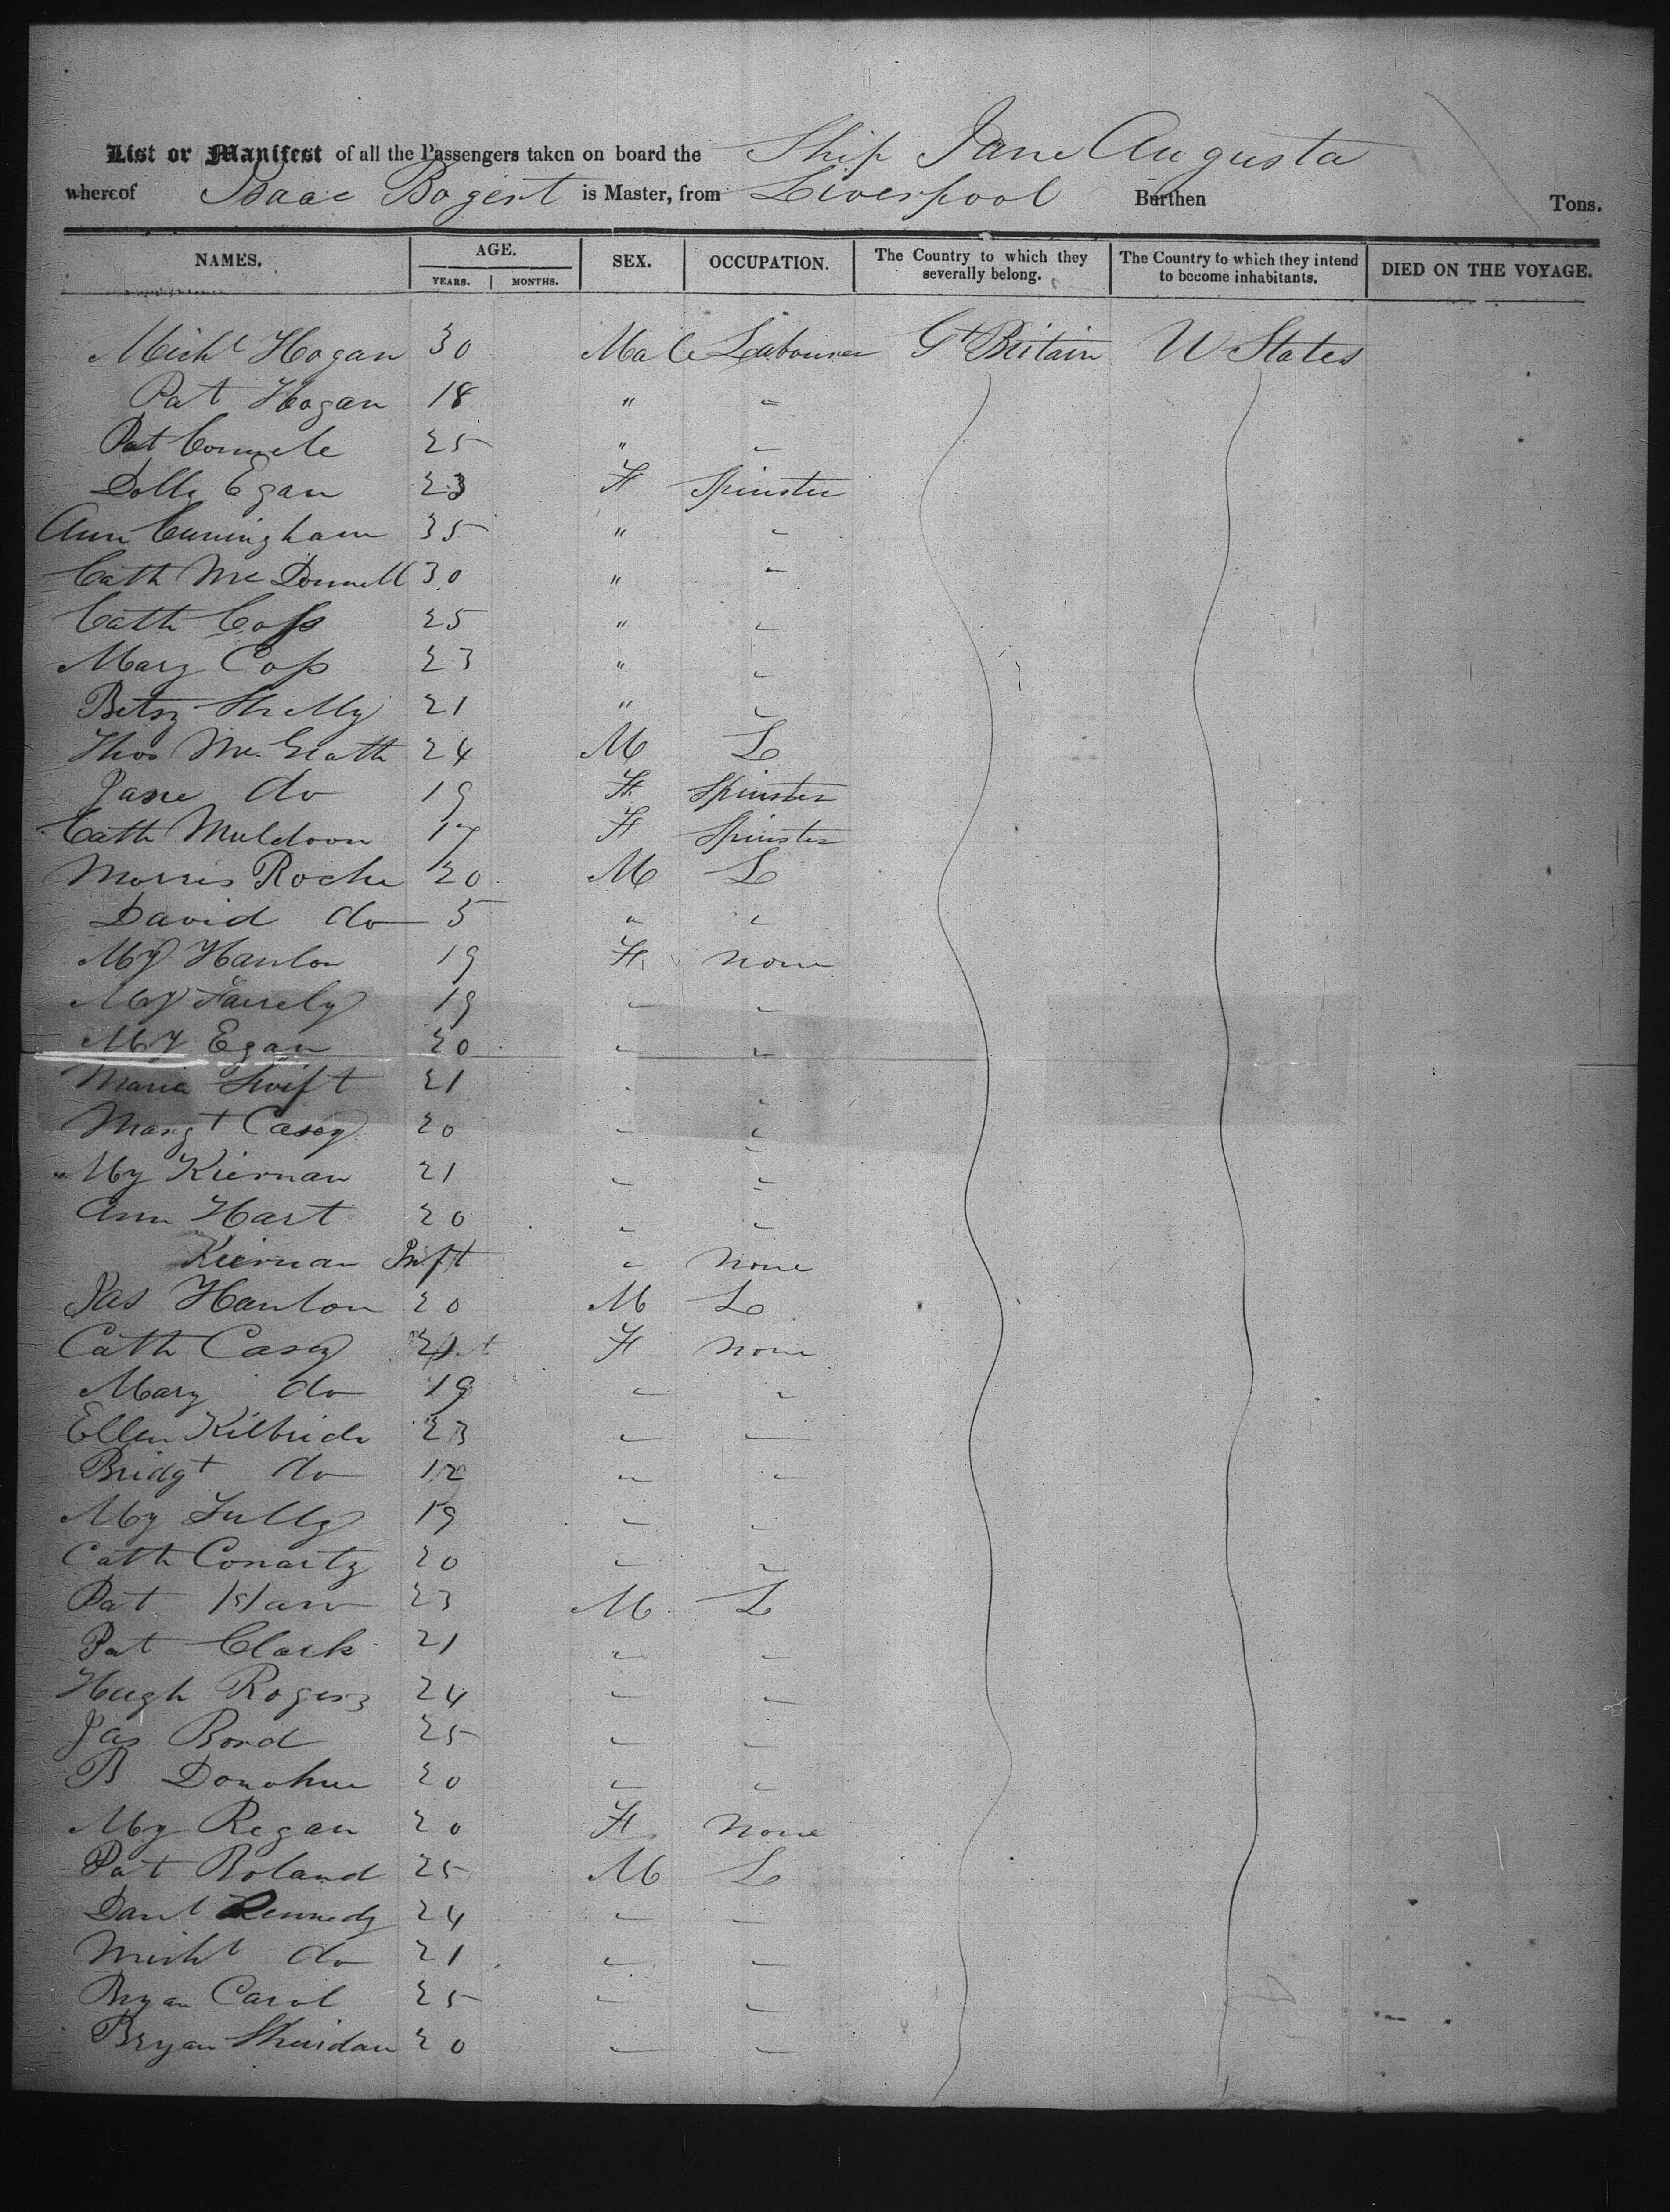 List or Manifest of all the Passengers taken on board the Ship Jane Augusta
whereof Isaac Bogert is Master, from Liverpool Burthen Tons.
NAMES. AGE. SEX. OCCUPATION. The Country to which they severally belong. The Country to which they intend to become inhabitants. DIED ON THE VOYAGE.
YEARS. MONTHS.
Michl Hogan 30 Male Labourer Gt Britain U States
Pat Hogan 18 " "
Pat 25 " "
Dolly Egan 23 F Spinster
Ann Cuningham 35 " "
Cath Mc Donnell 30 " "
Cath Coss 25 " "
Mary Coss 23 " "
Betsy Shelly 21 " "
Thos Mc Grath 24 M L
Jane do 19 F Spinster
Cath Muldoon 17 F Spinster
Morris Roche 20 M L
David do 5 " "
My Hanlon 19 F none
My Farrely 19 " "
My Egan 20 " "
Maria Swift 21 " "
Margt Casey 20 " "
My Kiernan 21 " "
Ann Hart 20 " "
Kiernan Inft " None
Jas Hanlon 20 M L
Cath Casey F none
Mary do 19 " "
Ellen Kilbride 23 " "
Bridgt do " "
My 19 " "
Cath 20 " "
Pat 23 M L
Pat Clark 21 " "
Hugh Rogers 24 " "
Jas Bond 25 " "
B Donohue 20 " "
My Regan 20 F None
Pat Boland 25 M L
Danl Kennedy 24 " "
Michl do 21 " "
Bryan Carol 25 " "
Bryan Sheridan 20 " "